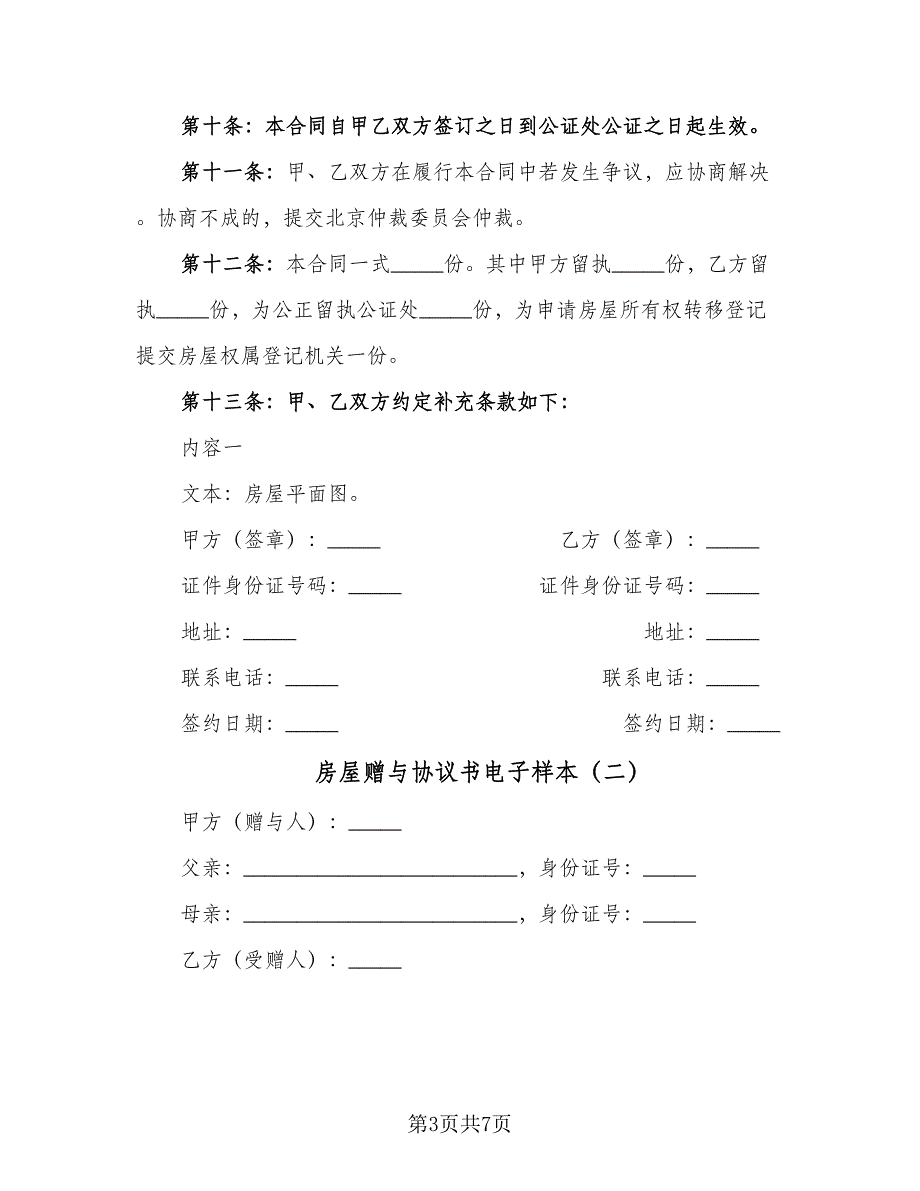 第十条：本合同自甲乙双方签订之日到公证处公证之日起生效。
第十一条：甲、乙双方在履行本合同中若发生争议，应协商解决
。协商不成的，提交北京仲裁委员会仲裁。
第十二条：本合同一式_____份。其中甲方留执_____份，乙方留
执_____份，为公正留执公证处_____份，为申请房屋所有权转移登记
提交房屋权属登记机关一份。
第十三条：甲、乙双方约定补充条款如下：
内容一
文本：房屋平面图。
甲方（签章）：_____ 乙方（签章）：_____
证件身份证号码：_____ 证件身份证号码：_____
地址：_____ 地址：_____
联系电话：_____ 联系电话：_____
签约日期：_____ 签约日期：_____
房屋赠与协议书电子样本（二）
甲方（赠与人）：_____
父亲：__________________________，身份证号：_____
母亲：__________________________，身份证号：_____
乙方（受赠人）：_____
第3页共7页